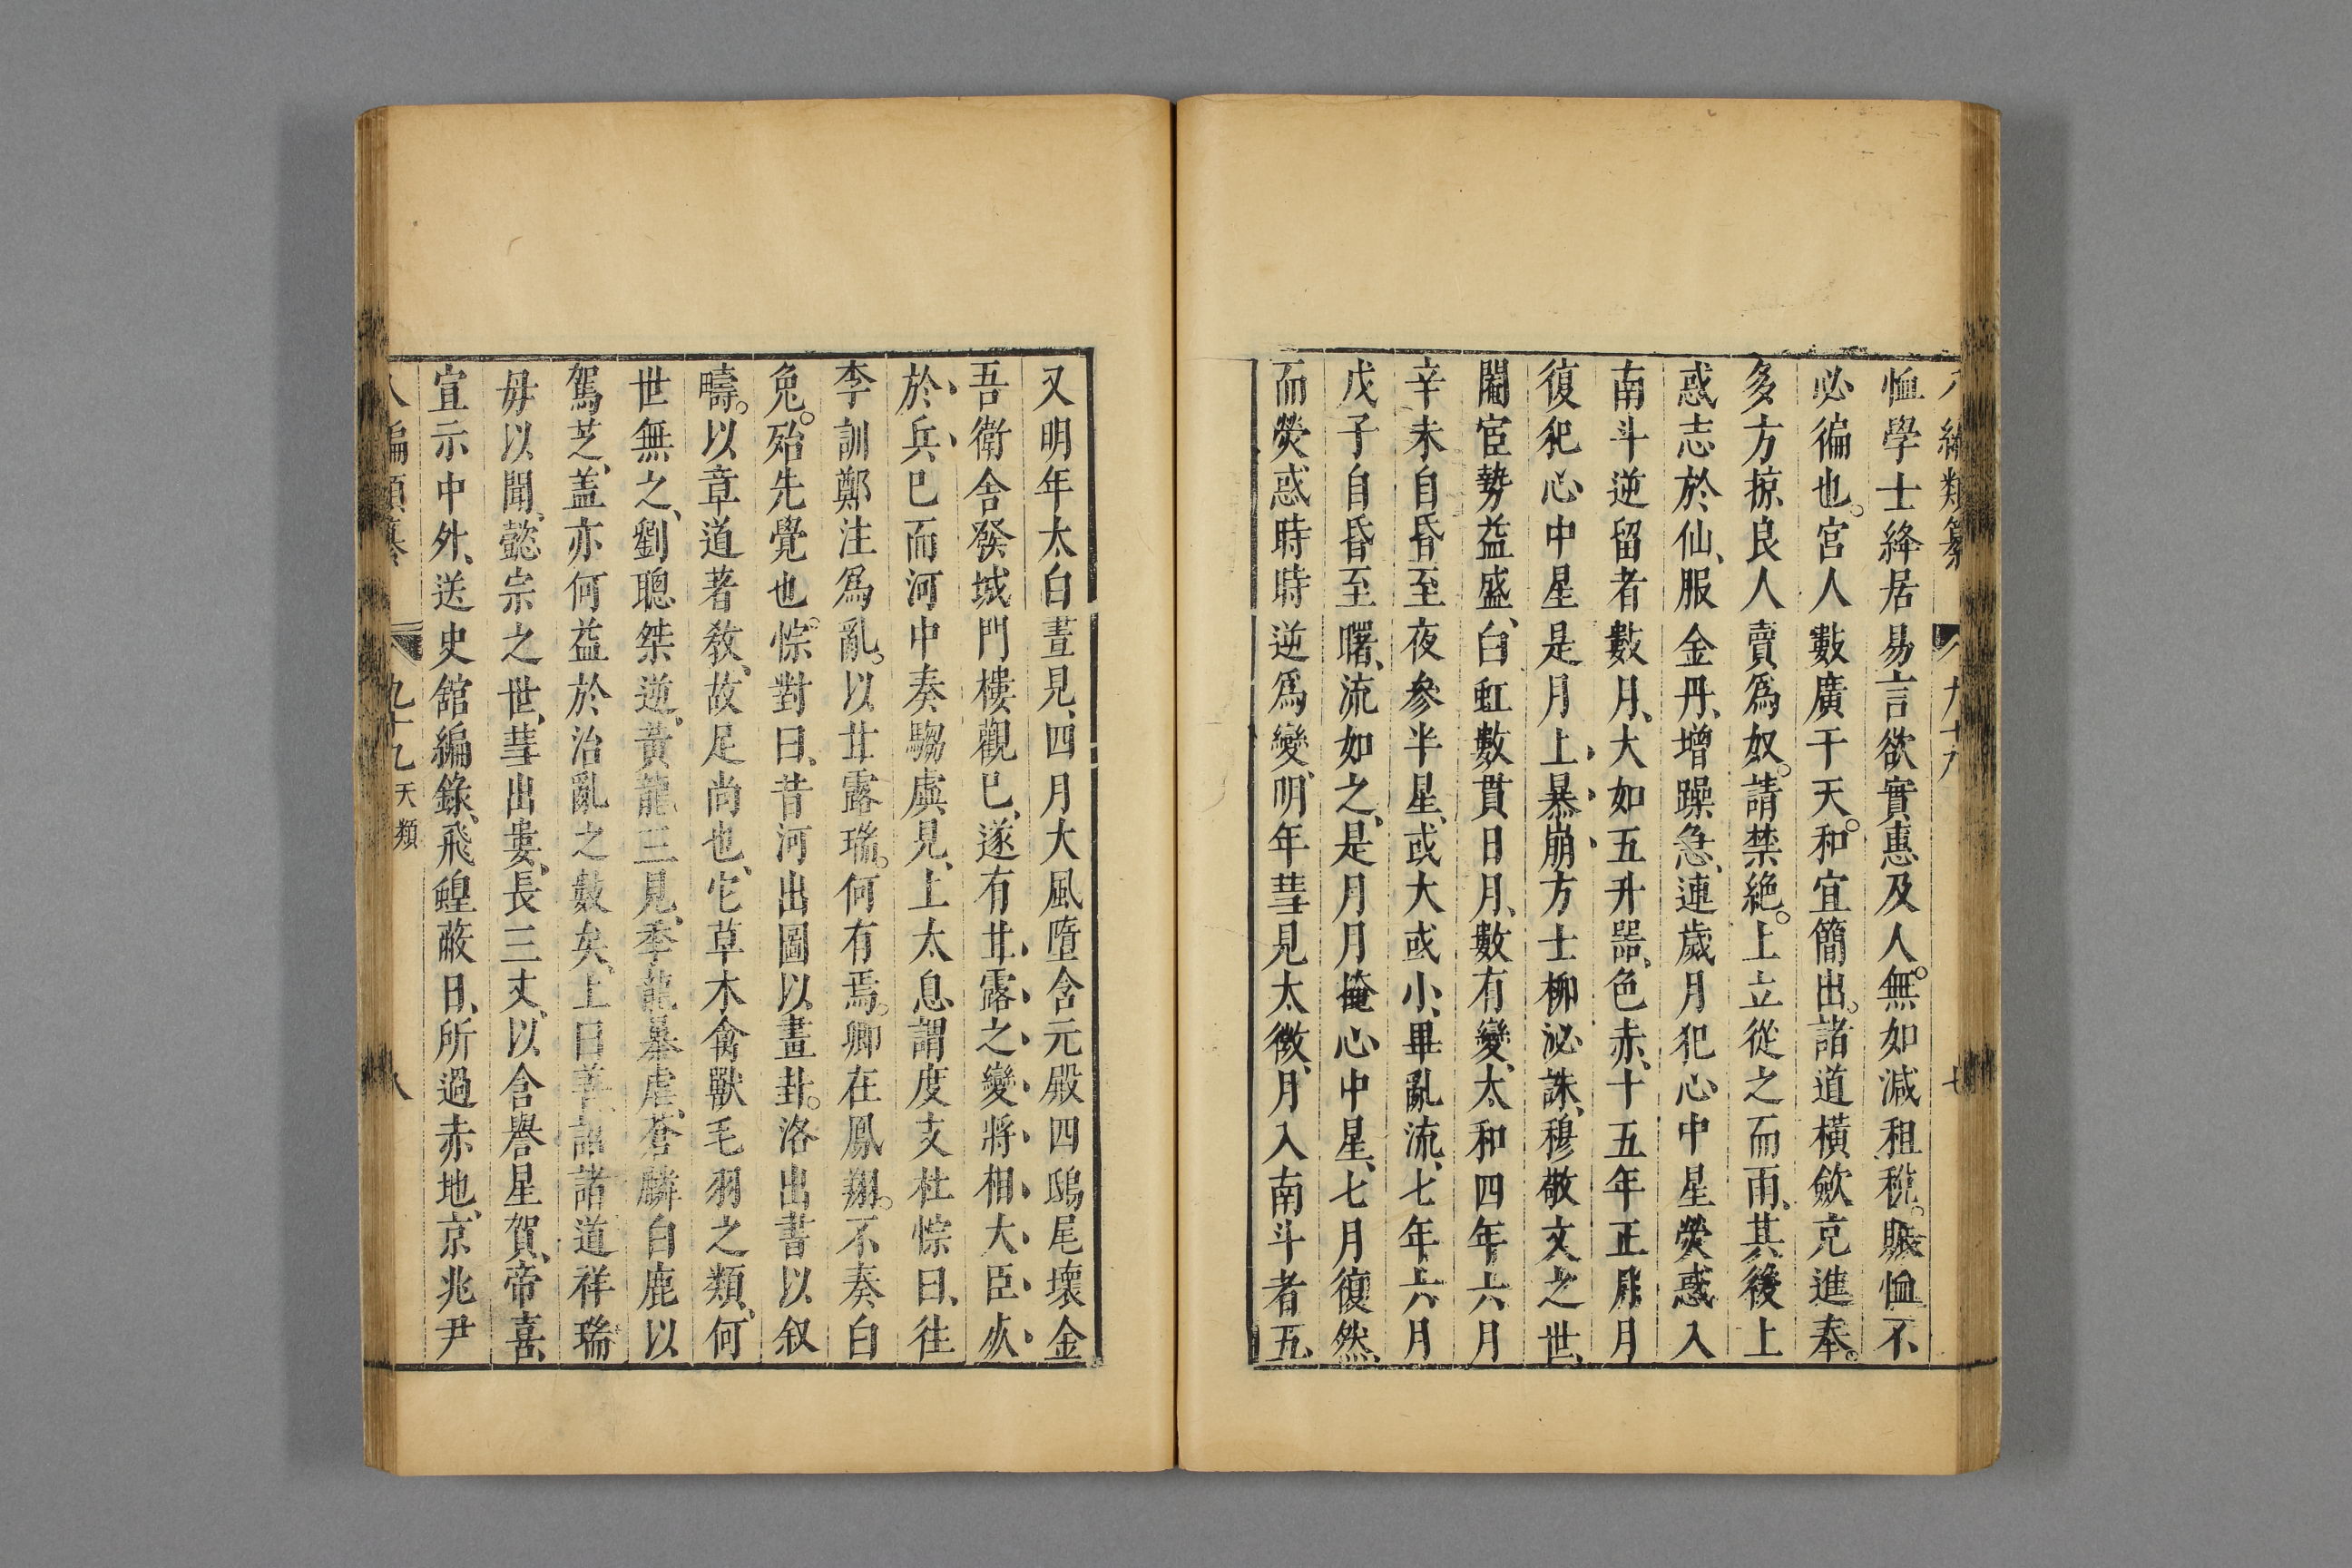 恤學士絳居易言欲實惠及人。無如減租稅。賑恤不
必徧也。宮人數廣干天。和宜簡出。諸道橫歛克進奉。
多方掠良人賣爲奴。請禁絶。上立從之而雨、其後上
惑志於仙、服金丹、增躁急、連歲月犯心中星熒惑入
南斗逆留者數月、大如五升噐、色赤、十五年正月月
復犯心中星是月上暴崩方士栁泌誅、穆敬文之世、
閹宦勢益盛、白虹數貫日月、數有變、太和四年六月
辛未自昏至夜參半星、或大或小、畢亂流、七年六月
戊子自昏至曙、流如之、是月月掩心中星、七月復然、
而熒惑時時逆爲變、明年彗見太微、月入南斗者五、
又明年太白晝見、四月大風墮含元殿四鴟尾壞金
吾衛舍發城門樓觀巳、遂有甘露之變將相大臣灰
於兵、巳而河中奏騶虞見、上太息、謂度支杜悰曰、徃
李訓鄭注爲亂。以甘露瑞。何有焉。卿在鳳翔。不奏白
兔。殆先覺也。悰對曰、昔河出圖以畫卦。洛出書以叙
疇。以章道著敎、故足尚也、它草木禽獸毛羽之類、何
世無之、劉聰桀逆、黃龍三見、季龍暴虐、蒼麟白鹿以
駕芝、葢亦何益於治亂之數矣、上曰善、詔諸道祥瑞
毋以聞、懿宗之世、彗出婁、長三丈、以含譽星賀、帝喜、
宣示中外、送史舘編錄、飛蝗蔽日、所過赤地、京兆尹
八編類纂 九十九 天類 八